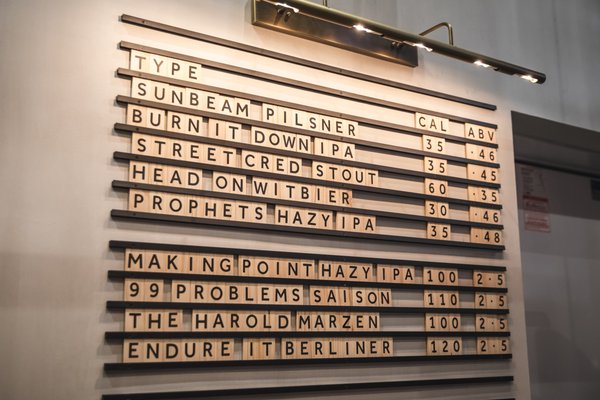 TYPE CAL ABV
SUNBEAM PILSNER 35 .46
BURN IT DOWN IPA 35 .45
STREET CRED STOUT 60 .35
HEAD ON WITBIER 30 .46
PROPHETS HAZY IPA 35 .48
MAKING POINT HAZY IPA 100 2.5
99 PROBLEMS SAISON 110 2.5
THE HAROLD MARZEN 100 2.5
ENDURE IT BERLINER 120 2.5